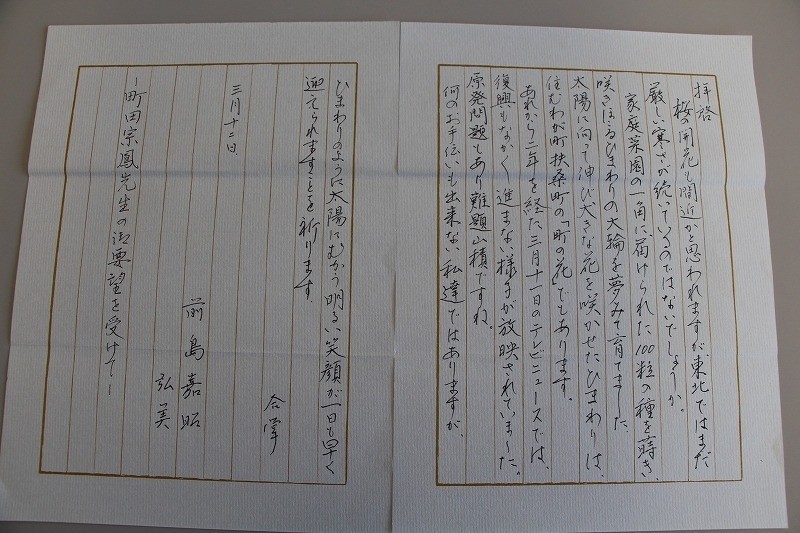 拝啓
桜の開花も間近かと思われますが、東北ではまだ
厳しい寒さが続いているのではないでしょうか。
家庭菜園の一角に、届けられた100粒の種を蒔き、
咲きほこるひまわりの大輪を夢みて育てました。
太陽に向って伸び大きな花を咲かせたひまわりは、
住むわが町扶桑町の「町花」でもあります。
あれから二年を経た三月十一日のテレビニュースでは、
復興もなかなか進まない様子が放映されていました。
原発問題もあり難題山積ですね。
何のお手伝いも出来ない私達ではありますが、
ひまわりのように太陽にむかう明るい笑顔が一日も早く
迎えられますことを祈ります。
合掌
三月十二日
前島嘉昭
弘美
－町田宗鳳先生の御要望を受けて－